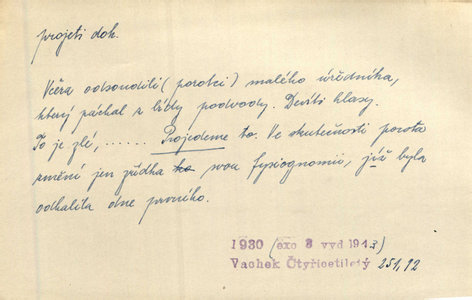 projeti dok.
Včera odsoudili (porotci) malého úředníka,
který páchal z bídy podvody. Devíti hlasy.
To je zlé, ...... Projedeme to. Ve skutečnosti porota
změní jen zřídka svou fysiognomii, již byla
odhalita dne prvního.
1930 (exc 8 vyd 1943)
Vachek Čtyřicetiletý 251,12